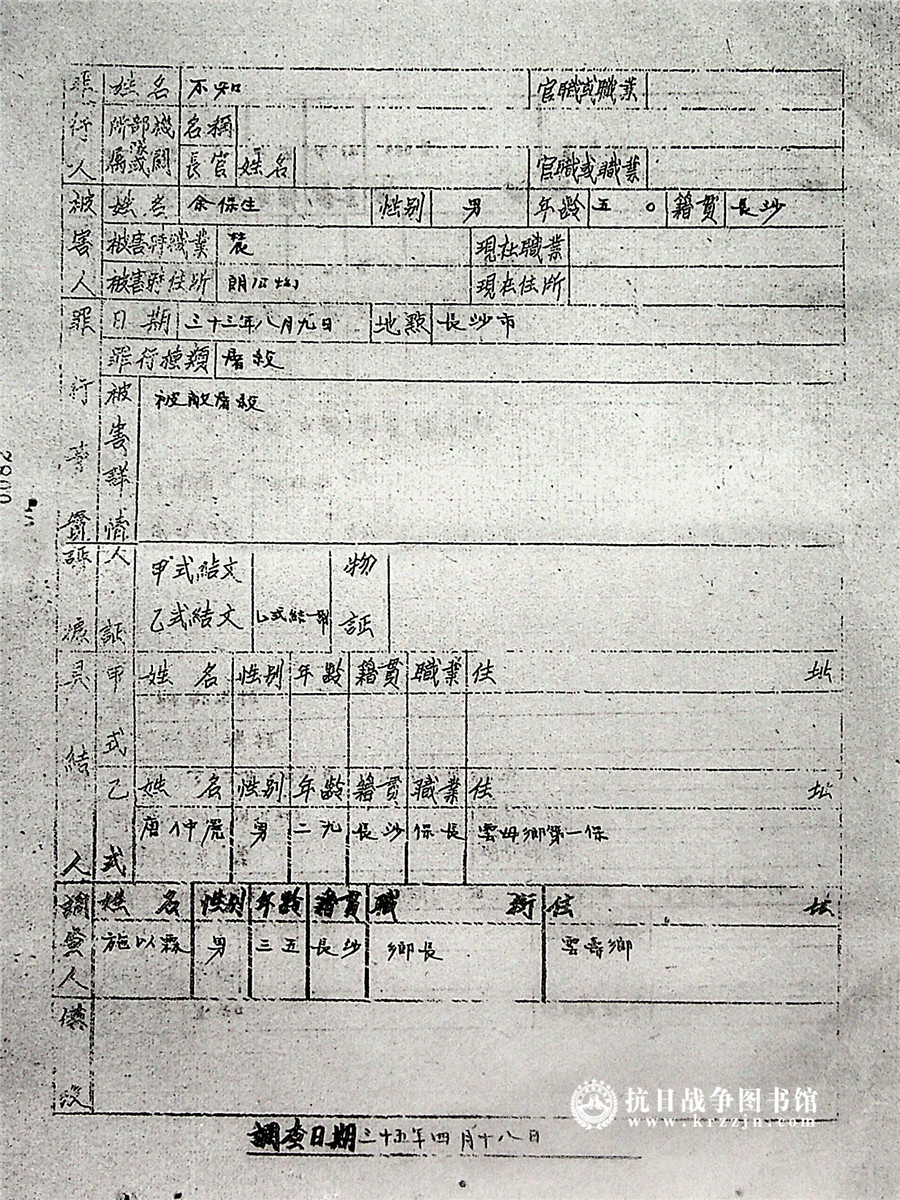 罪行人 姓名 不知 官職或職業
所屬部隊或機關 名稱
長官 姓名 官職或職業
被害人 姓名 余保生 性别 男 年齡 五〇 籍貫 長沙
被害時職業 農 現在職業
被害時住所 現在住所
罪行事實 日期 三十三年八月九日 地點 長沙市
罪行種類 屠殺
被害詳情 被敵屠殺
証據 人証 甲式結文 物証
乙式結文 乙式結一
具結人 甲式 姓名 性别 年齡 籍貫 職業 住址
乙式 姓名 性别 年齡 籍貫 職業 住址
唐仲 男 二九 長沙 保長 第一保
調查人 姓名 性别 年齡 籍貫 職銜 住址
施以霖 男 三五 長沙 鄉長 鄉
0082
抗日战争图书馆
www.krzzjn.com
調查日期 三十五年四月十八日